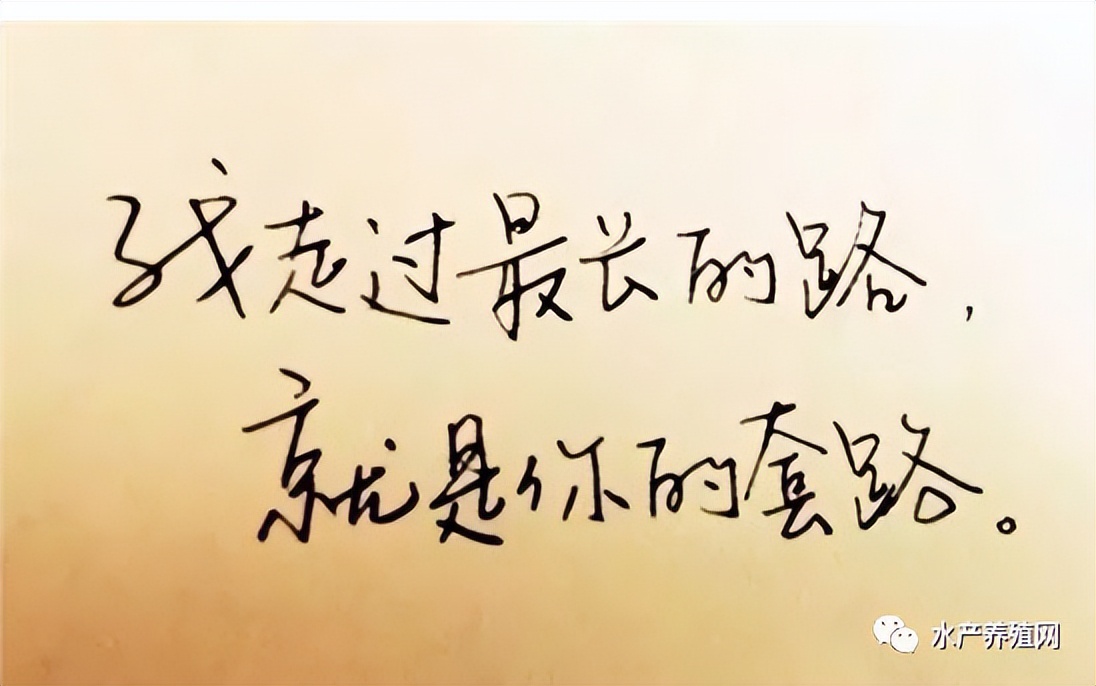 我走过最长的路,
就是你的套路。
水产养殖网